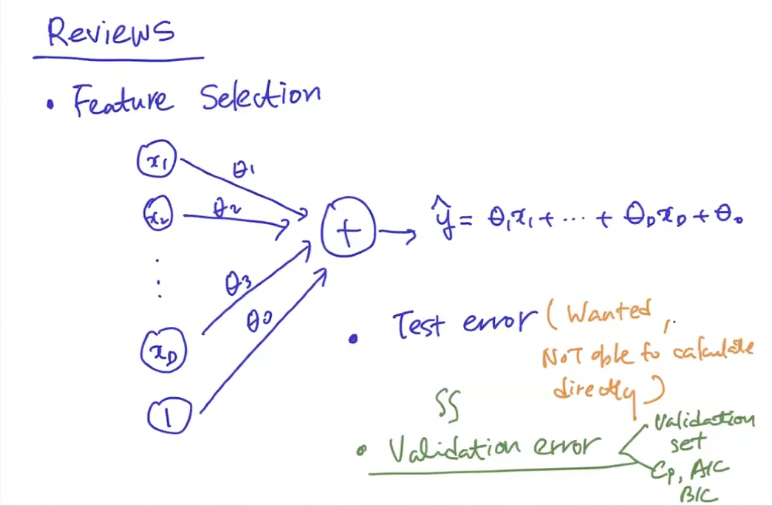 Reviews
• Feature Selection
x₁
θ₁
x₂
θ₂
⋮
θ₃
x_D
θ₀
1
+
ŷ = θ₁x₁ + ⋯ + θ_D x_D + θ₀
• Test error (Wanted,
NOT able to calculate
directly)
SS
• Validation error
Validation
set
Cp, AIC
BIC